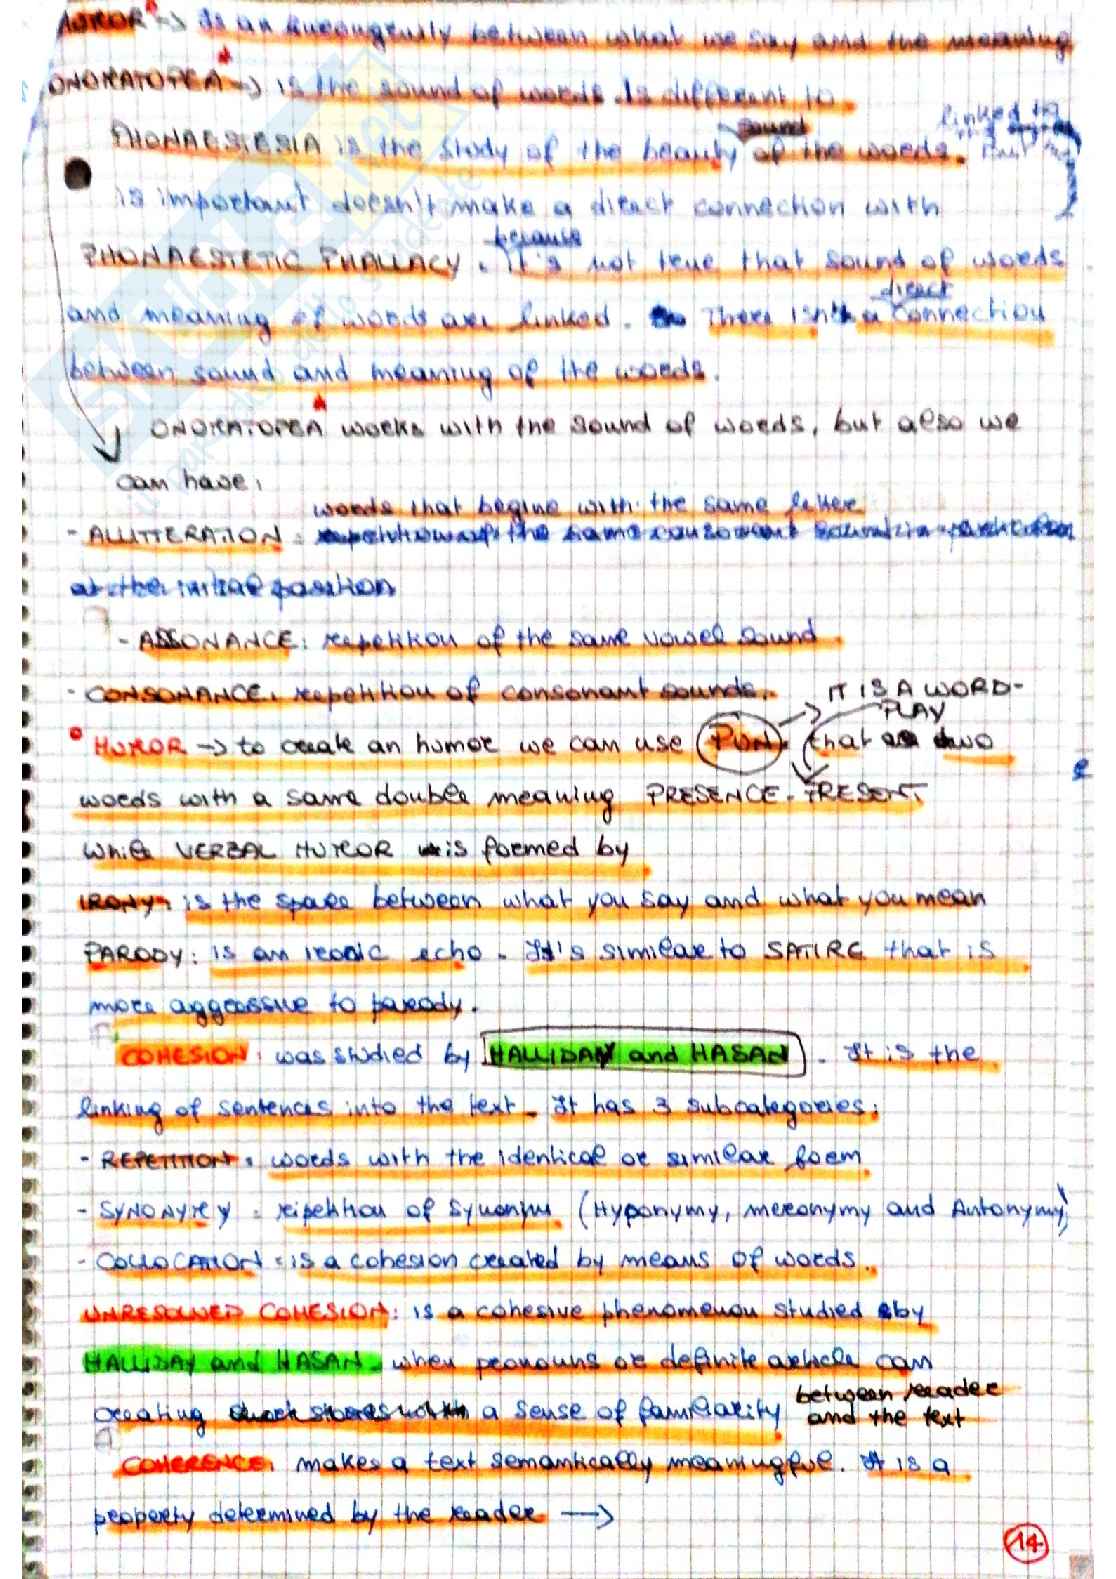 HUMOR → Is an incongruity between what we say and the meaning
ONOMATOPEA → is the sound of words. Is different to
PHONAESTESIA is the study of the beauty sound of the words. linked to
is important doesn't make a direct connection with
PHONAESTETIC PHALLACY. because it's not true that sound of words
and meaning of words are linked. There isn't a direct connection
between sound and meaning of the words.
ONOMATOPEA works with the sound of words, but also we
can have:
words that begine with the same letter
- ALLITTERATION: repetition of the same consonant sound in particular
at the initial position
- ASSONANCE: repetition of the same vowel sound
- CONSONANCE: repetition of consonant sounds. IT IS A WORD-
PLAY
HUMOR → to create an humor we can use PUN that two
words with a same double meaning PRESENCE - PRESENT.
while VERBAL HUMOR is formed by
IRONY: is the space between what you say and what you mean
PARODY: is an ironic echo. It's similar to SATIRE that is
more aggressive to parody.
COHESION: was studied by HALLIDAY and HASAN. It is the
linking of sentences into the text. It has 3 subcategories:
- REPETITION: words with the identical or similar form.
- SYNONYMY: ripetition of synonyms (Hyponymy, meronymy and Antonymy)
- COLLOCATION: is a cohesion created by means of words.
UNRESOLVED COHESION: is a cohesive phenomenon studied by
HALLIDAY and HASAN. when pronouns or definite article can
creating a sense of familiarity between reader
and the text
COHERENCE: makes a text semantically meaningful. It is a
property determined by the reader →
14